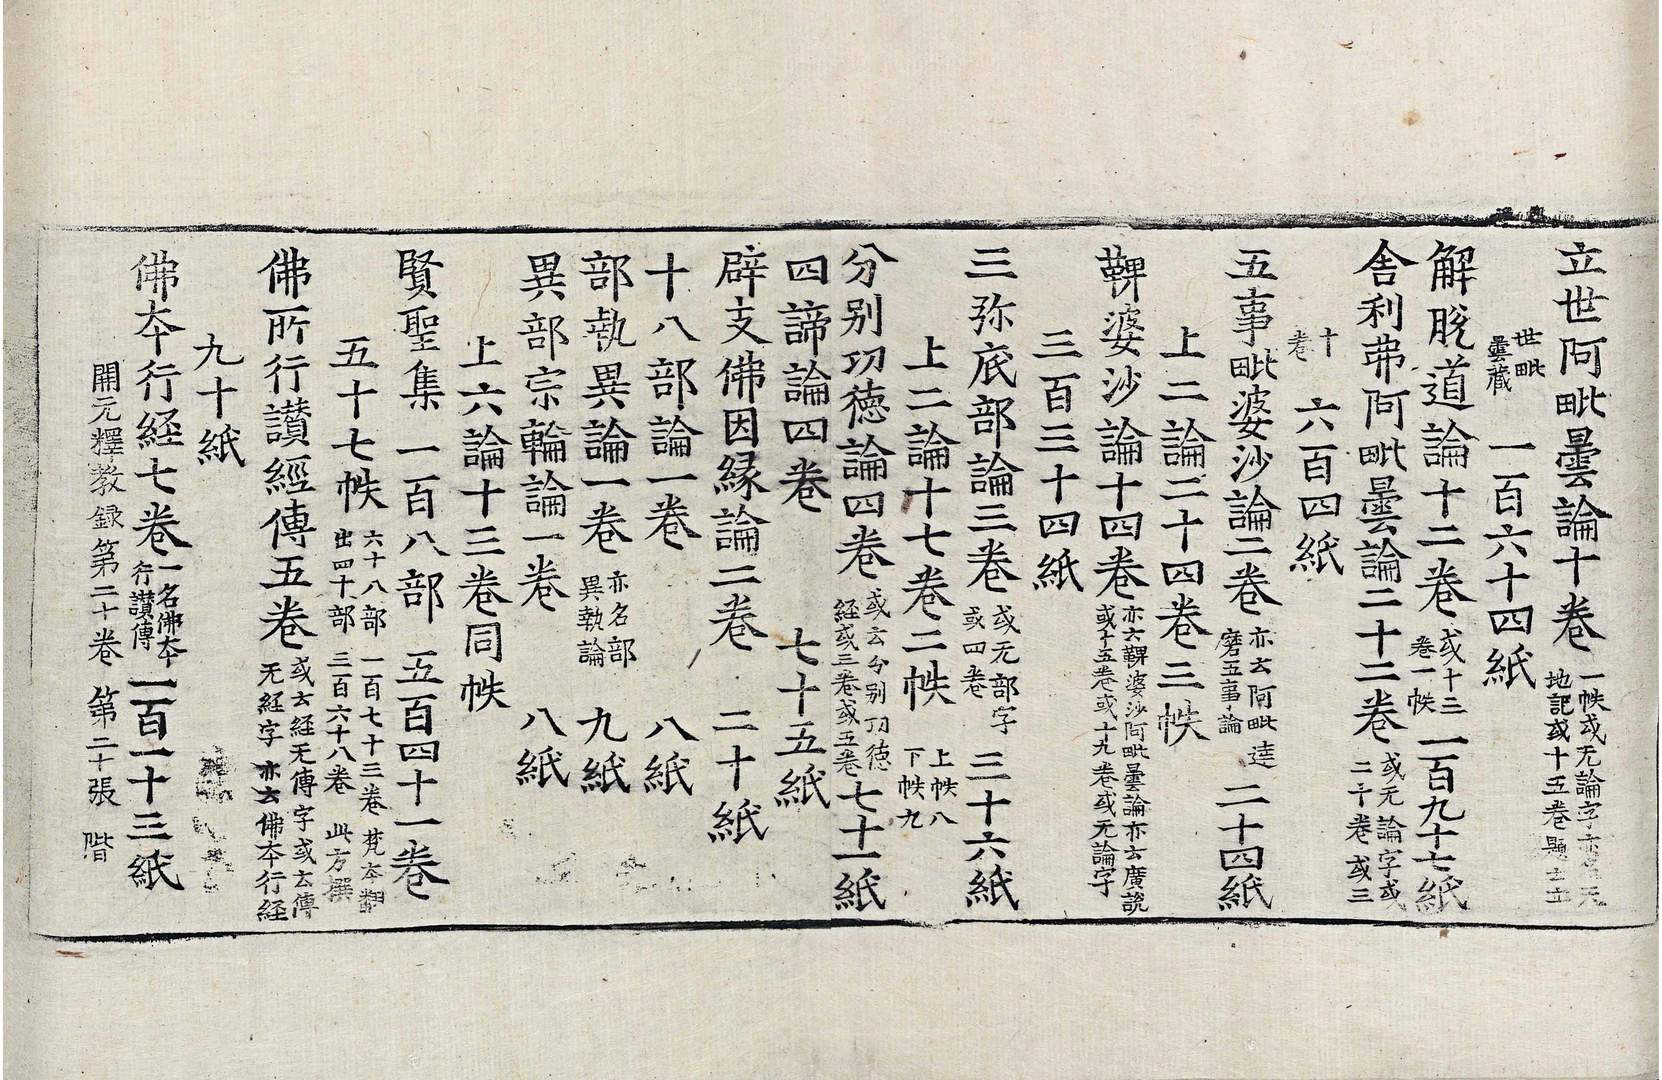 立世阿毗曇論十卷 一帙或无論字亦 天 地記或十五卷題 立
世毗曇藏 一百六十四紙
解脫道論十二卷 或十三卷一帙 一百九十七紙
舍利弗阿毗曇論二十二卷 或无論字或二十卷或三
十卷 六百四紙
五事毗婆沙論二卷 亦云阿毗達磨五事論 二十四紙
上二論二十四卷三帙
鞞婆沙論十四卷 亦云鞞婆沙阿毗曇論亦云廣說或十五卷或十九卷或无論字
三百三十四紙
三弥底部論三卷 或无部字或四卷 三十六紙
上二論十七卷二帙 上帙八下帙九
分別功德論四卷 或云分別功德経或三卷或五卷 七十一紙
四諦論四卷 七十五紙
辟支佛因緣論二卷 二十紙
十八部論一卷 八紙
部執異論一卷 亦名部異執論 九紙
異部宗輪論一卷 八紙
上六論十三卷同帙
賢聖集 一百八部 五百四十一卷
五十七帙 六十八部 一百七十三卷 梵夲翻出四十部 三百六十八卷 此方撰
佛所行讃經傳五卷 或云經无傳字或云傳无經字亦云佛夲行経
九十紙
佛夲行経七卷 一名佛夲行讃傳 一百一十三紙
開元釋教録第二十卷 第二十張 階